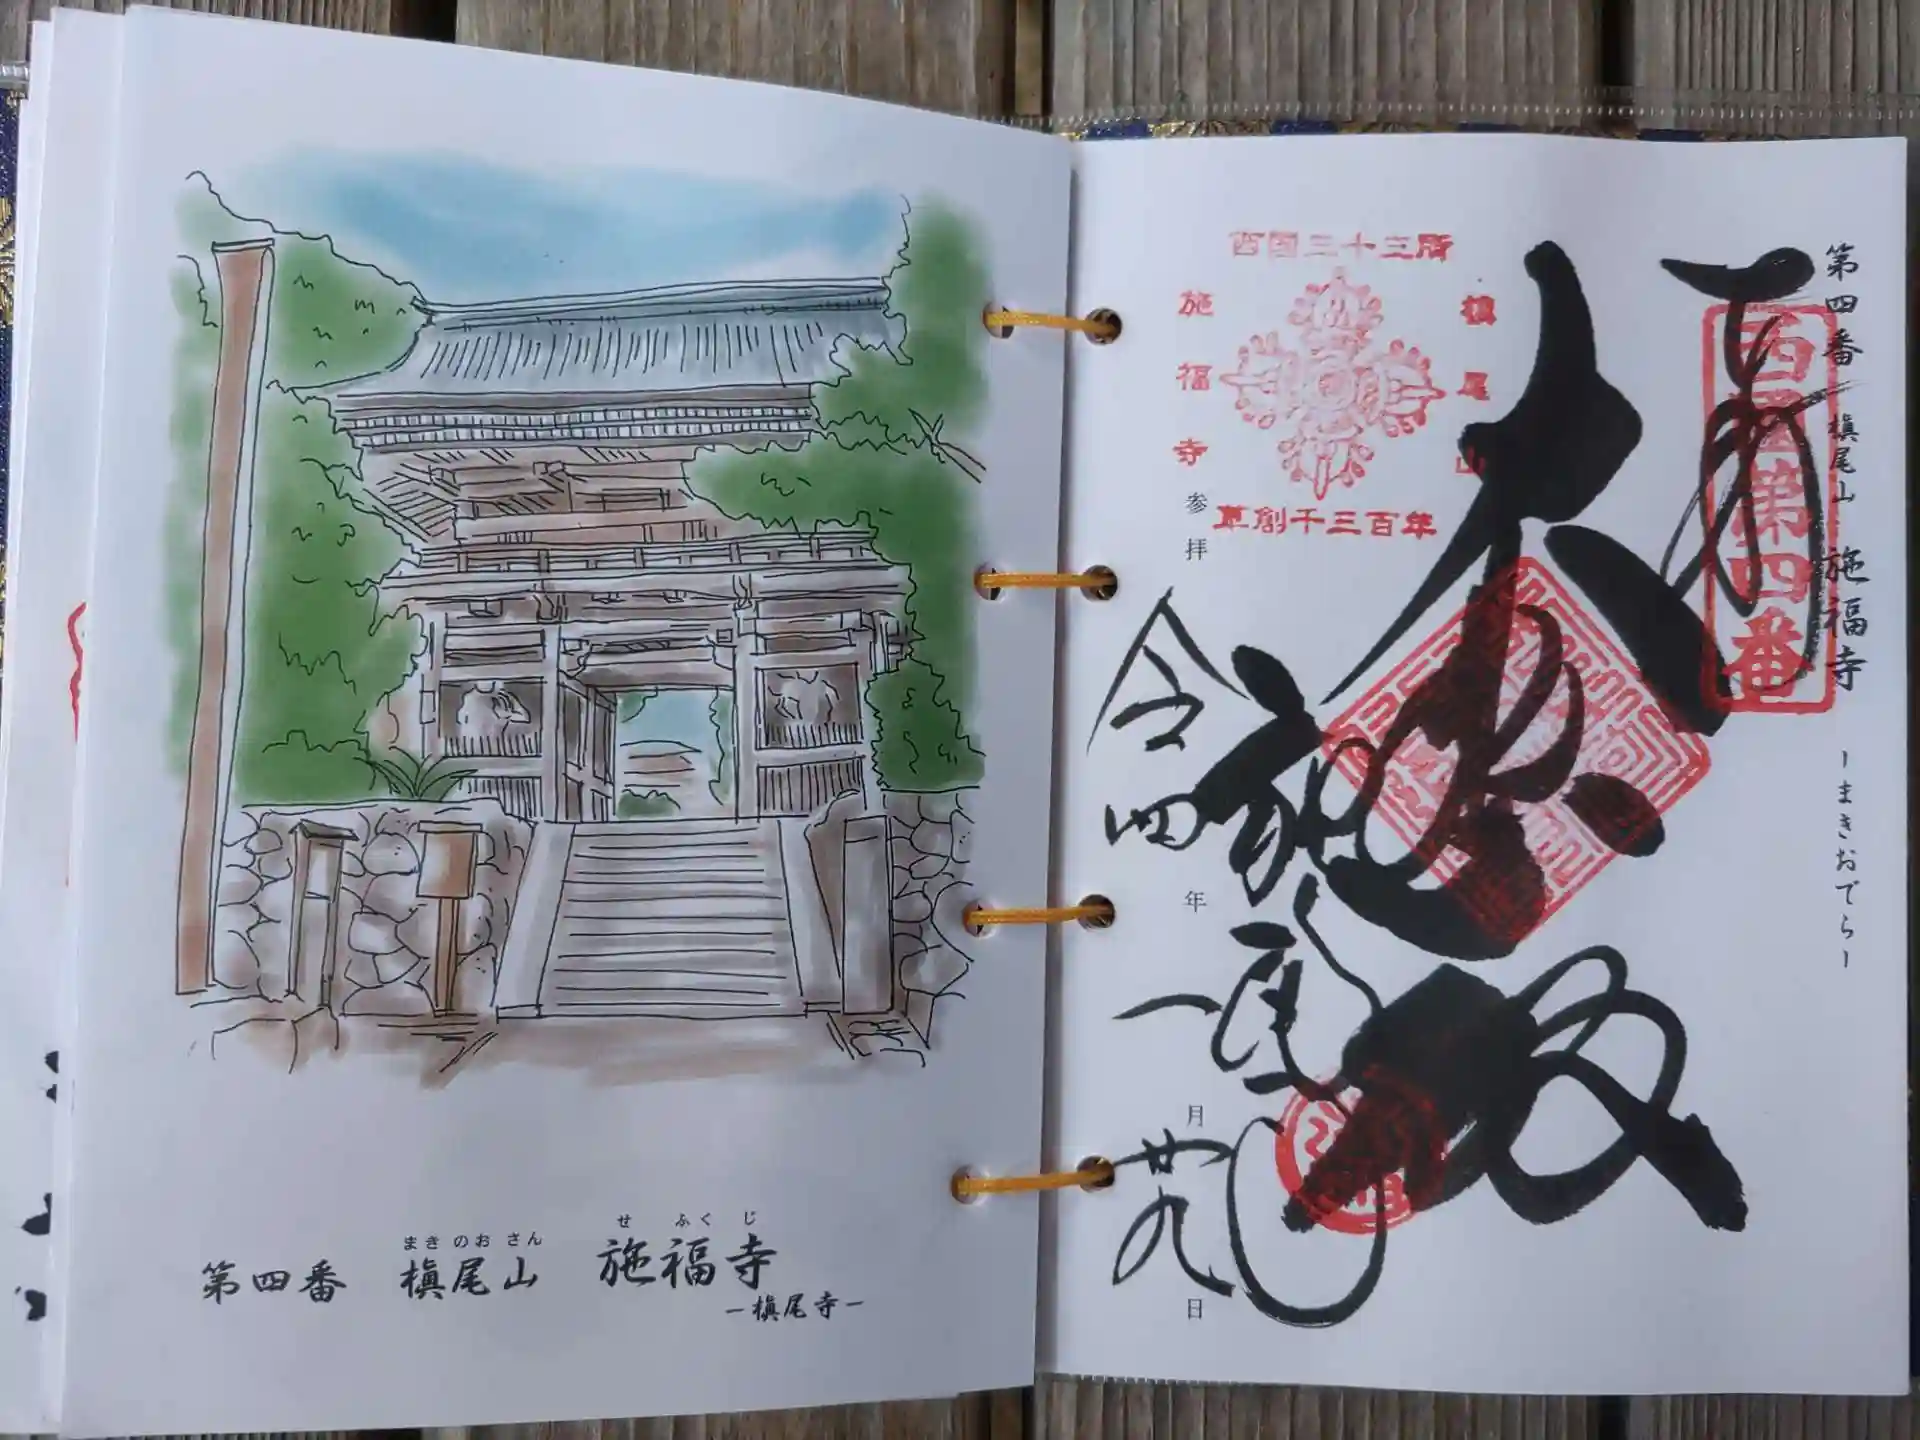 せ ふく じ
まき のお さん
第四番 槇尾山 施福寺
－槇尾寺－
第四番 槇尾山 施福寺 －まきおでら－
西国第四番
奉拝
大悲殿
西国三十三所
槇尾山
施福寺
草創千三百年
施福寺
参拝 令四年 一月 廿九日